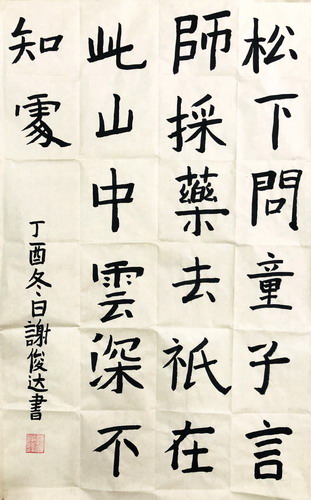 松下問童子言
師採藥去祇在
此山中雲深不
知處
丁酉冬日謝俊达書